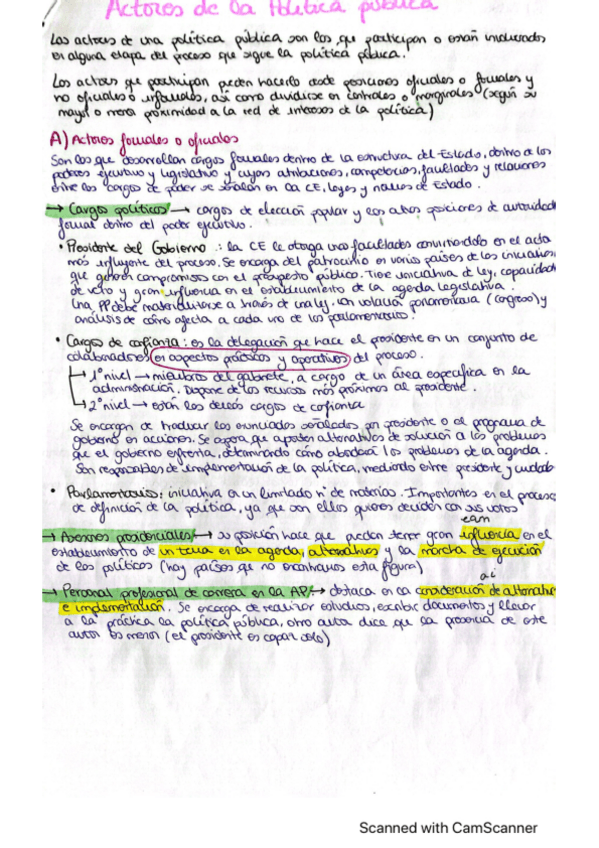 Actores de la Política pública
Los actores de una política pública son los que participan o están involucrados
en alguna etapa del proceso que sigue la política pública.
Los actores que participan pueden hacerlo desde posiciones oficiales o formales y
no oficiales o informales, así como dividirse en centrales o marginales (según su
mayor o menor proximidad a la red de intereses de la política)
A) Actores formales o oficiales
Son los que desarrollan cargos formales dentro de la estructura del Estado, dentro de los
poderes ejecutivo y legislativo y cuyas atribuciones, competencias, facultades y relaciones
entre los cargos de poder se señalan en la CE, leyes y normas de Estado.
→ Cargos políticos → cargos de elección popular y los altos posiciones de autoridad
formal dentro del poder ejecutivo.
• Presidente del Gobierno: la CE le otorga unas facultades convirtiendolo en el actor
más influyente del proceso. Se encarga del patrocinio en varios países de las iniciativas
que generan compromisos con el presupuesto público. Tiene iniciativa de ley, capacidad
de veto y gran influencia en el establecimiento de la agenda legislativa.
Una PP debe materializarse a través de una ley con votación parlamentaria (congreso) y
análisis de cómo afecta a cada uno de los parlamentarios!
• Cargos de confianza: es la delegación que hace el presidente en un conjunto de
colaboradores en aspectos prácticos y operativos del proceso.
→ 1º nivel → miembros del gabinete, a cargo de un área específica en la
administración. Dispone de los recursos más próximos al presidente.
→ 2º nivel → están los demás cargos de confianza
Se encargan de traducir los enunciados señalados por presidente o el programa de
gobierno en acciones. Se espera que aporten alternativas de solución a los problemas
que el gobierno enfrenta, determinando cómo abordará los problemas de la agenda.
Son responsables de implementación de la política, mediando entre presidente y ciudad
• Parlamentarios: iniciativa en un limitado nº de materias. Importantes en el proceso
de definición de la política, ya que son ellos quienes deciden con sus votos
eam
→ Asesores presidenciales → su posición hace que puedan tener gran influencia en el
establecimiento de un tema en la agenda, alternativas y la marcha de ejecución
de las políticas (hay países que no encontramos esta figura)
ai
→ Personal profesional de carrera en la AP → destaca en la consideración de alternativ
e implementación. Se encarga de realizar estudios, escribir documentos y llevar
a la práctica la política pública, otro autor dice que la presencia de este
autor es menor (el presidente es capaz solo)
Scanned with CamScanner